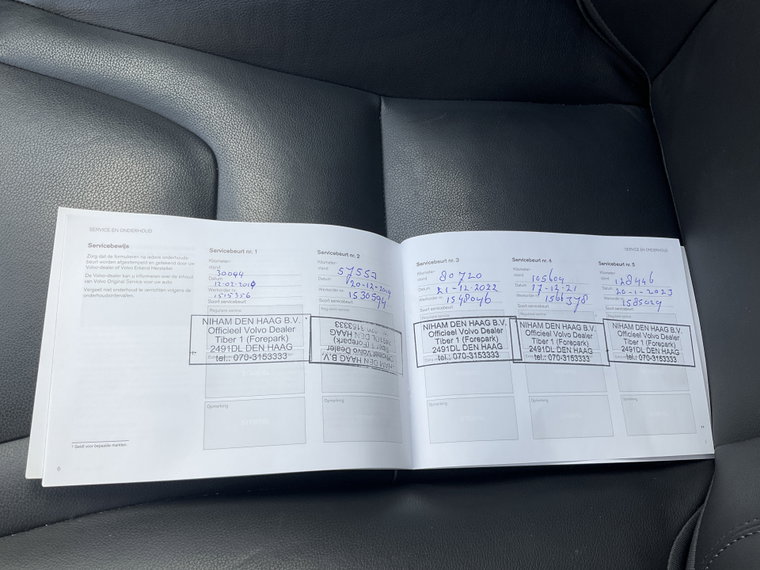 SERVICE EN ONDERHOUD
Servicebewijs
Zorg dat de formulieren na iedere onderhouds-
beurt worden afgestempeld en getekend door uw
Volvo-dealer of Volvo Erkend Hersteller.
De Volvo-dealer kan u informeren over de inhoud
van Volvo Original Service voor uw auto.
Vergeet niet onderhoud te verrichten volgens de
onderhoudsintervallen.
¹ Geldt voor bepaalde markten.
6
Servicebeurt nr. 1
Kilometer-
stand
30044
Datum
Werkorder nr.
1515356
Soort servicebeurt
Reguliere service
NIHAM DEN HAAG B.V.
Officieel Volvo Dealer
Tiber 1 (Forepark)
2491DL DEN HAAG
tel.: 070-3153333
Opmerking
Servicebeurt nr. 2
Kilometer-
stand
57552
Datum
Werkorder nr.
1530594
Soort servicebeurt
NIHAM DEN HAAG B.V.
Officieel Volvo Dealer
Opmerking
Servicebeurt nr. 3
Kilometer-
stand
80720
Datum
21-12-2022
Werkorder nr.
1548046
Soort servicebeurt
Reguliere service
NIHAM DEN HAAG B.V.
Officieel Volvo Dealer
Tiber 1 (Forepark)
2491DL DEN HAAG
tel.: 070-3153333
Opmerking
Servicebeurt nr. 4
Kilometer-
stand
105604
Datum
17-12-21
Werkorder nr.
1566378
Soort servicebeurt
NIHAM DEN HAAG B.V.
Officieel Volvo Dealer
Tiber 1 (Forepark)
2491DL DEN HAAG
tel.: 070-3153333
Opmerking
SERVICE EN ONDERHOUD
Servicebeurt nr. 5
Kilometer-
stand
128446
Datum
20-1-2023
Werkorder nr.
1585029
Soort servicebeurt
NIHAM DEN HAAG B.V.
Officieel Volvo Dealer
Tiber 1 (Forepark)
2491DL DEN HAAG
tel.: 070-3153333
Opmerking